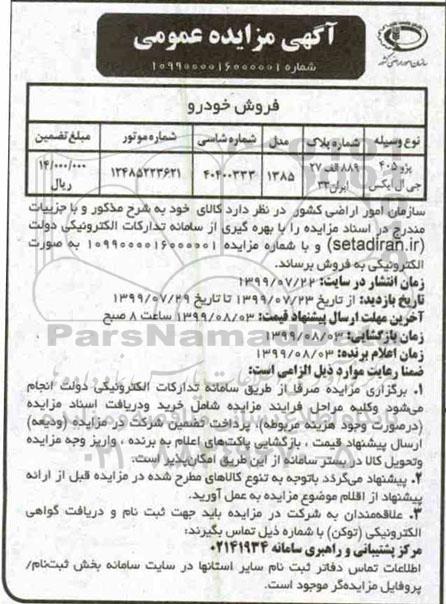 آگهی مزایده عمومی
شماره ۱۰۹۹۰۰۰۰۱۶۰۰۰۰۰۱
سازمان امور اراضی کشور
فروش خودرو
نوع وسیله شماره پلاک مدل شماره شاسی شماره موتور مبلغ تضمین
پژو ۴۰۵ جی ال ایکس ۸۸۹ الف ۲۷ ایران ۳۲ ۱۳۸۵ ۴۰۴۰۰۳۳۳ ۱۲۴۸۵۲۳۳۶۲۱ ۱۴/۰۰۰/۰۰۰ ریال
سازمان امور اراضی کشور در نظر دارد کالای خود به شرح مذکور و با جزییات
مندرج در اسناد مزایده را با بهره گیری از سامانه تدارکات الکترونیکی دولت
(setadiran.ir) و با شماره مزایده ۱۰۹۹۰۰۰۰۱۶۰۰۰۰۰۱ به صورت
الکترونیکی به فروش برساند.
زمان انتشار در سایت: ۱۳۹۹/۰۷/۲۲
تاریخ بازدید: از تاریخ ۱۳۹۹/۰۷/۲۳ تا تاریخ ۱۳۹۹/۰۷/۲۹
آخرین مهلت ارسال پیشنهاد قیمت: ۱۳۹۹/۰۸/۰۳ ساعت ۸ صبح
زمان بازگشایی: ۱۳۹۹/۰۸/۰۳
زمان اعلام برنده: ۱۳۹۹/۰۸/۰۳
ضمنا رعایت موارد ذیل الزامی است:
۱. برگزاری مزایده صرفا از طریق سامانه تدارکات الکترونیکی دولت انجام
می‌شود وکلیه مراحل فرایند مزایده شامل خرید ودریافت اسناد مزایده
(درصورت وجود هزینه مربوطه)، پرداخت تضمین شرکت در مزایده (ودیعه)
ارسال پیشنهاد قیمت ، بازگشایی پاکت‌های اعلام به برنده ، واریز وجه مزایده
وتحویل کالا در بستر سامانه از این طریق امکان‌پذیر است.
۲. پیشنهاد می‌گردد باتوجه به تنوع کالاهای مطرح شده در مزایده قبل از ارائه
پیشنهاد از اقلام موضوع مزایده به عمل آورید.
۳. علاقه‌مندان به شرکت در مزایده باید جهت ثبت نام و دریافت گواهی
الکترونیکی (توکن) با شماره ذیل تماس بگیرند:
مرکز پشتیبانی و راهبری سامانه ۰۲۱۴۱۹۳۴
اطلاعات تماس دفاتر ثبت نام سایر استانها در سایت سامانه بخش ثبت‌نام/
پروفایل مزایده‌گر موجود است.
ParsNamadData